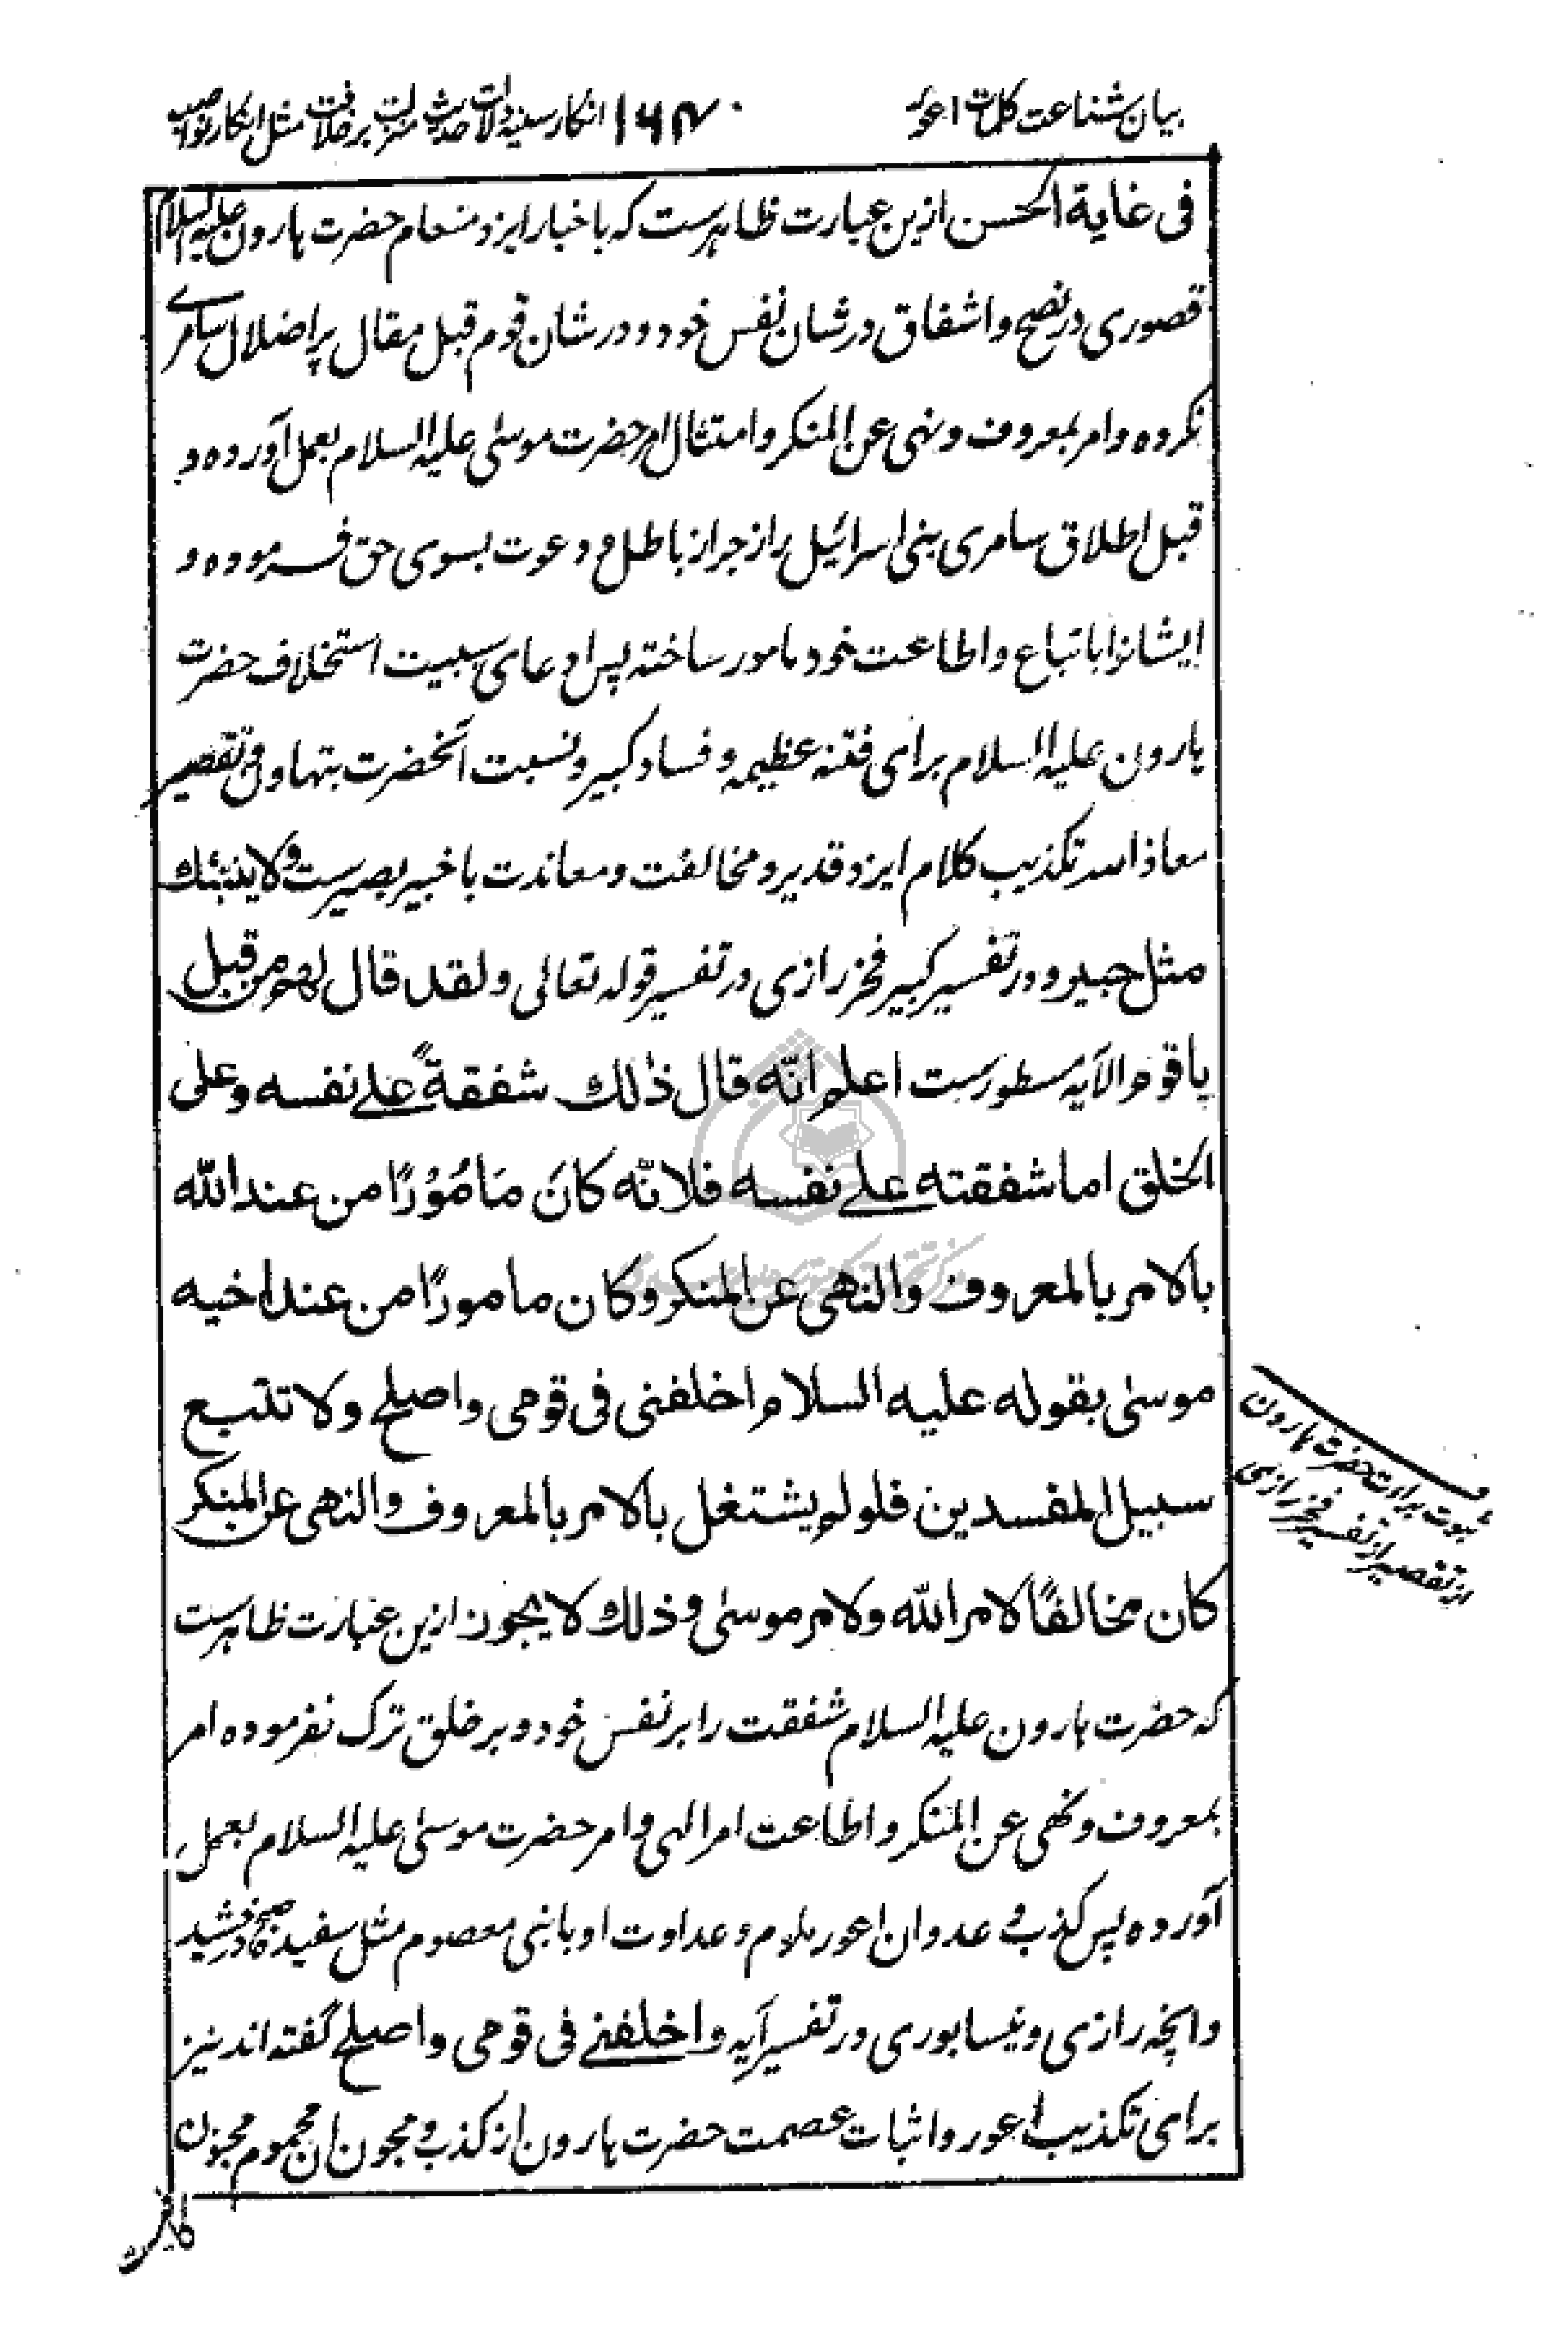 بیان شناعت کلمات اعور
۱۶۴۰
انکار سنیه دلالت حدیث منزلت بر خلافت مثل انکار نواصب
فی غایة الحسن ازین عبارت ظاهرست که باخبار ایزد منعام حضرت هارون علیه السلام
قصوری در نصح و اشفاق در شان نفس خود و در شان قوم قبل مقال پر اضلال سامرے
نکرده و امر بمعروف و نهی عن المنکر و امتثال امر حضرت موسیٰ علیه السلام بعمل آورده و
قبل اطلاق سامری بنی اسرائیل را زجر از باطل و دعوت بسوی حق فرموده و
ایشانرا باتباع و اطاعت خود مامور ساخته پس ادعای سببیت استخلاف حضرت
هارون علیه السلام برای فتنه عظیمه و فساد کبیر و نسبت آنحضرت بتهاون و تقصیر
معاذ الله تکذیب کلام ایزد قدیر و مخالفت و معاندت با خبیر بصیرست ولا ینبئك
مثل خبیر و در تفسیر کبیر فخر رازی در تفسیر قوله تعالی ولقد قال لهم من قبل
یا قوم الآیه مسطورست اعلم انّه قال ذٰلك شفقةً علے نفسه وعلی
الخلق اما شفقته علے نفسه فلانّه کانَ مَامُوْرًا من عند الله
بالامر بالمعروف والنهی عن المنکر وکان مامورًا من عند اخیه
موسیٰ بقوله علیه السلام اخلفنی فی قومی واصلح ولا تتبع
سبیل المفسدین فلو لم یشتغل بالامر بالمعروف والنهی عن المنکر
کان مخالفًا لامر الله ولامر موسیٰ وذلك لا یجوز ازین عبارت ظاهرست
که حضرت هارون علیه السلام شفقت را بر نفس خود و بر خلق ترک نفرموده امر
بمعروف و نهی عن المنکر و اطاعت امر الهی و امر حضرت موسیٰ علیه السلام بعمل
آورده پس کذب و عدوان اعور ملوم و عداوت او با نبی معصوم مثل سفیده صبح درخشید
و آنچه رازی و نیسابوری در تفسیر آیه واخلفنے فی قومی واصلح گفته اند نیز
برای تکذیب اعور و اثبات عصمت حضرت هارون از کذب و مجون ان محموم مجنون
کافیست
ثبوت برارت حضرت هارون
از تقصیر از تفسیر فخر رازی